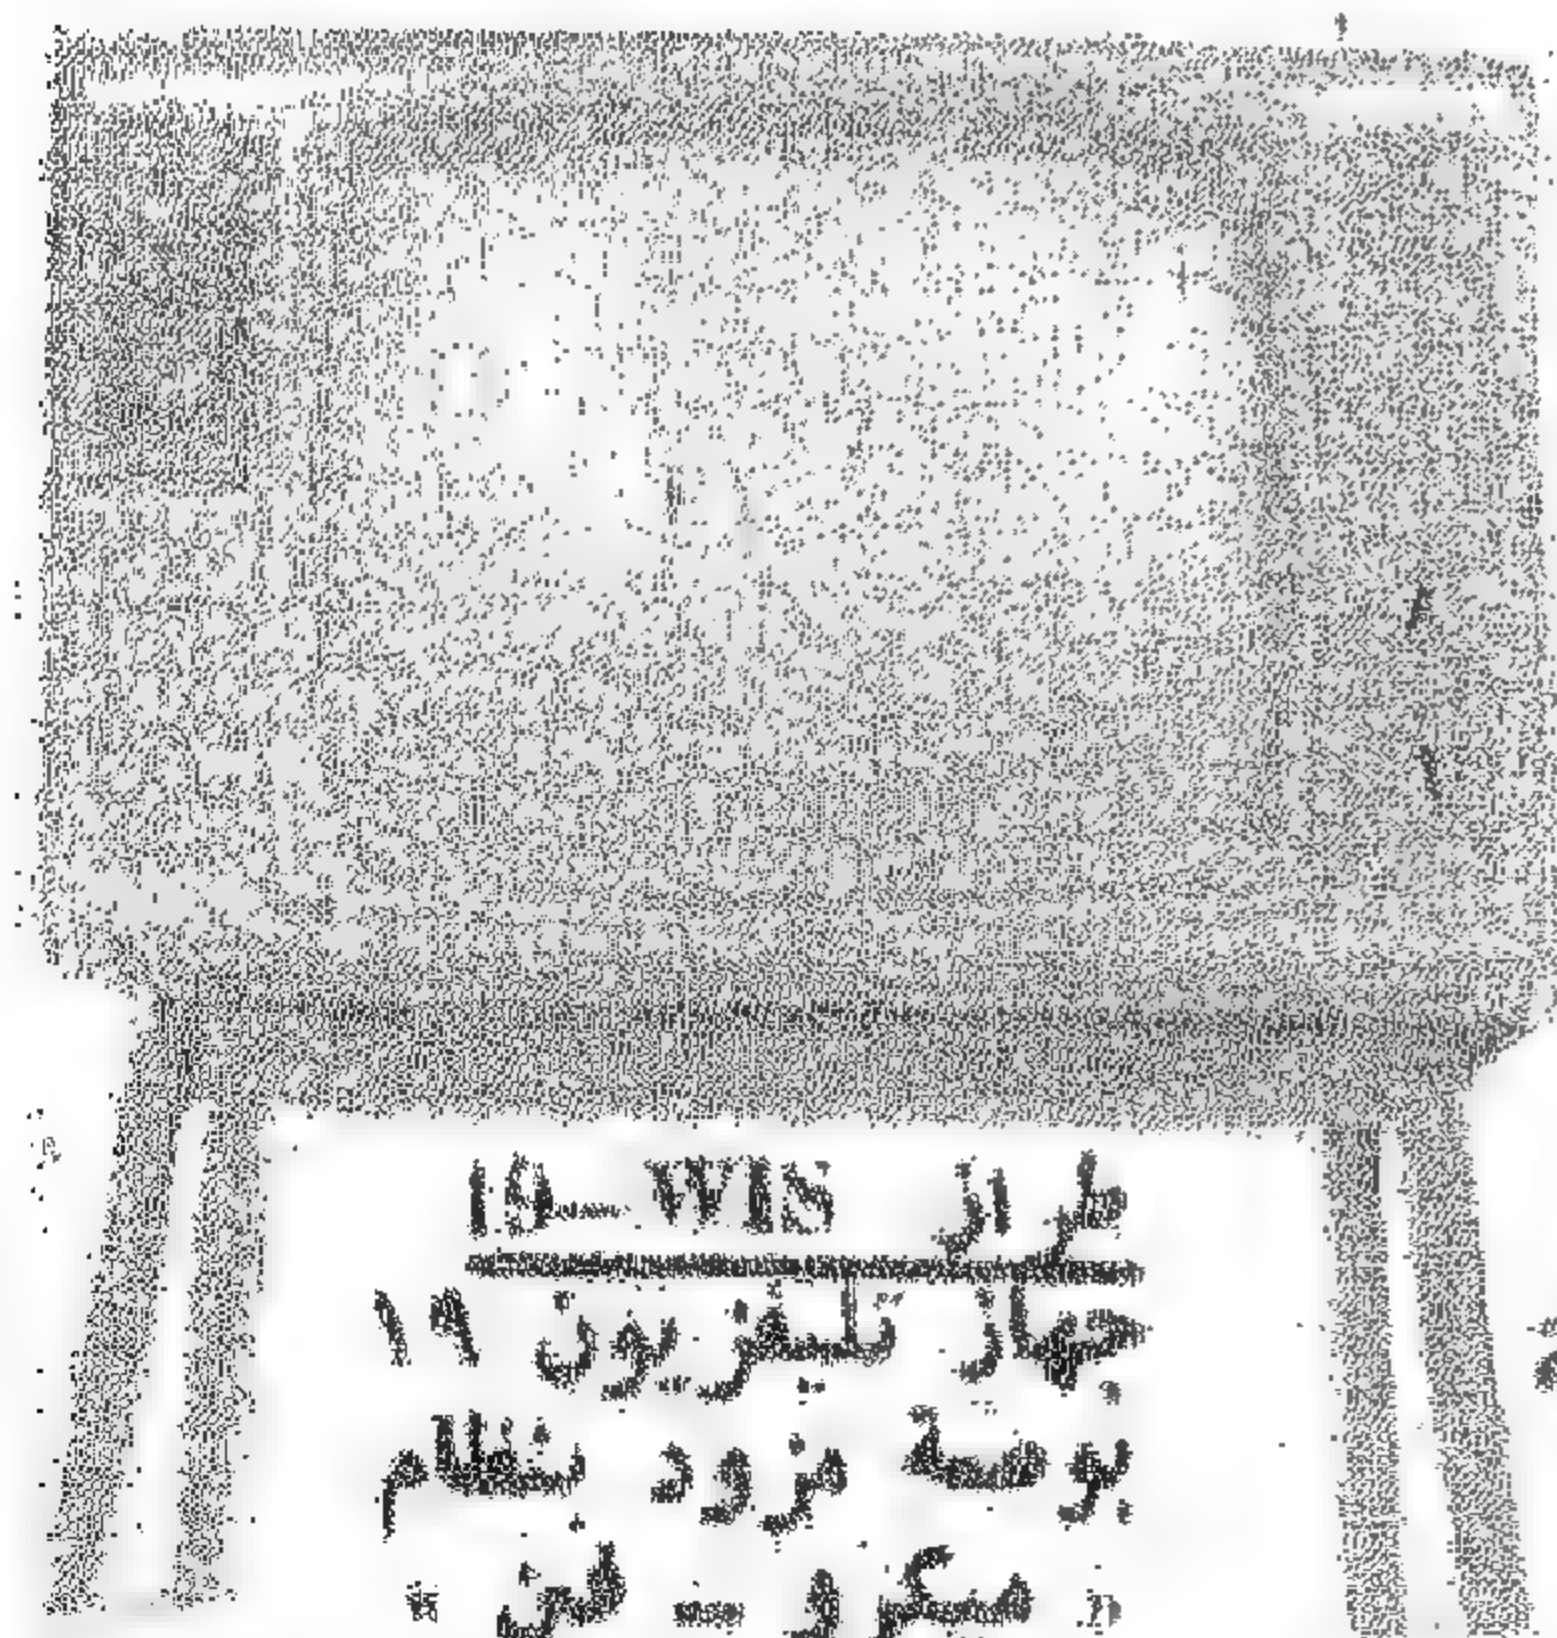 طراز 19_WIS
جهاز تلفزيون ١٩
بوصة مزود بنظام